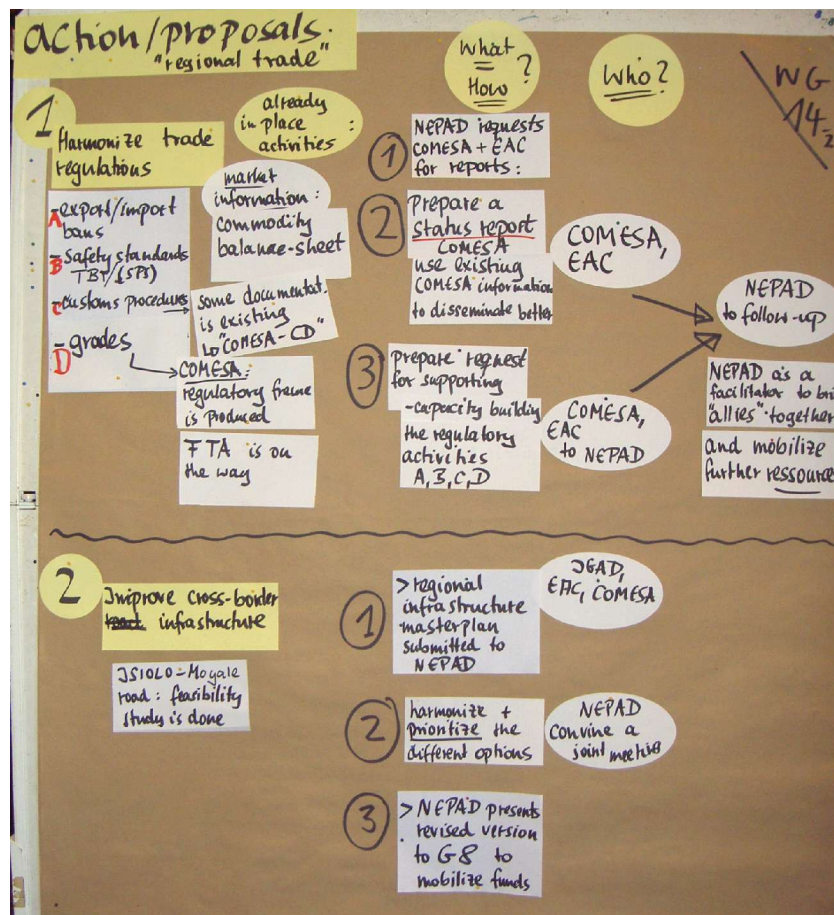 action/proposals.
"regional trade"
What
How ?
Who?
WG
14.2
1
Harmonize trade
regulations
already
in place :
activities
A -export/import
bans
B -Safety standards
TBT/(SPS)
C -customs procedures
D -grades
market
information:
commodity
balance-sheet
some documentat.
is existing
"COMESA-CD"
COMESA:
regulatory frame
is produced
FTA is on
the way
1
NEPAD requests
COMESA + EAC
for reports:
2
Prepare a
status report
COMESA
use existing
COMESA information
to disseminate better
COMESA,
EAC
3
prepare request
for supporting
-capacity building
the regulatory
activities
A, B, C, D
COMESA,
EAC
to NEPAD
NEPAD
to follow-up
NEPAD as a
facilitator to bri
"allies" together
and mobilize
further ressource
2
Improve cross-border
infrastructure
ISIOLO-Moyale
road: feasibility
study is done
1
>regional
infrastructure
masterplan
submitted to
NEPAD
IGAD,
EAC, COMESA
2
harmonize +
prioritize the
different options
NEPAD
convine a
joint meeting
3
> NEPAD presents
revised version
to G8 to
mobilize funds